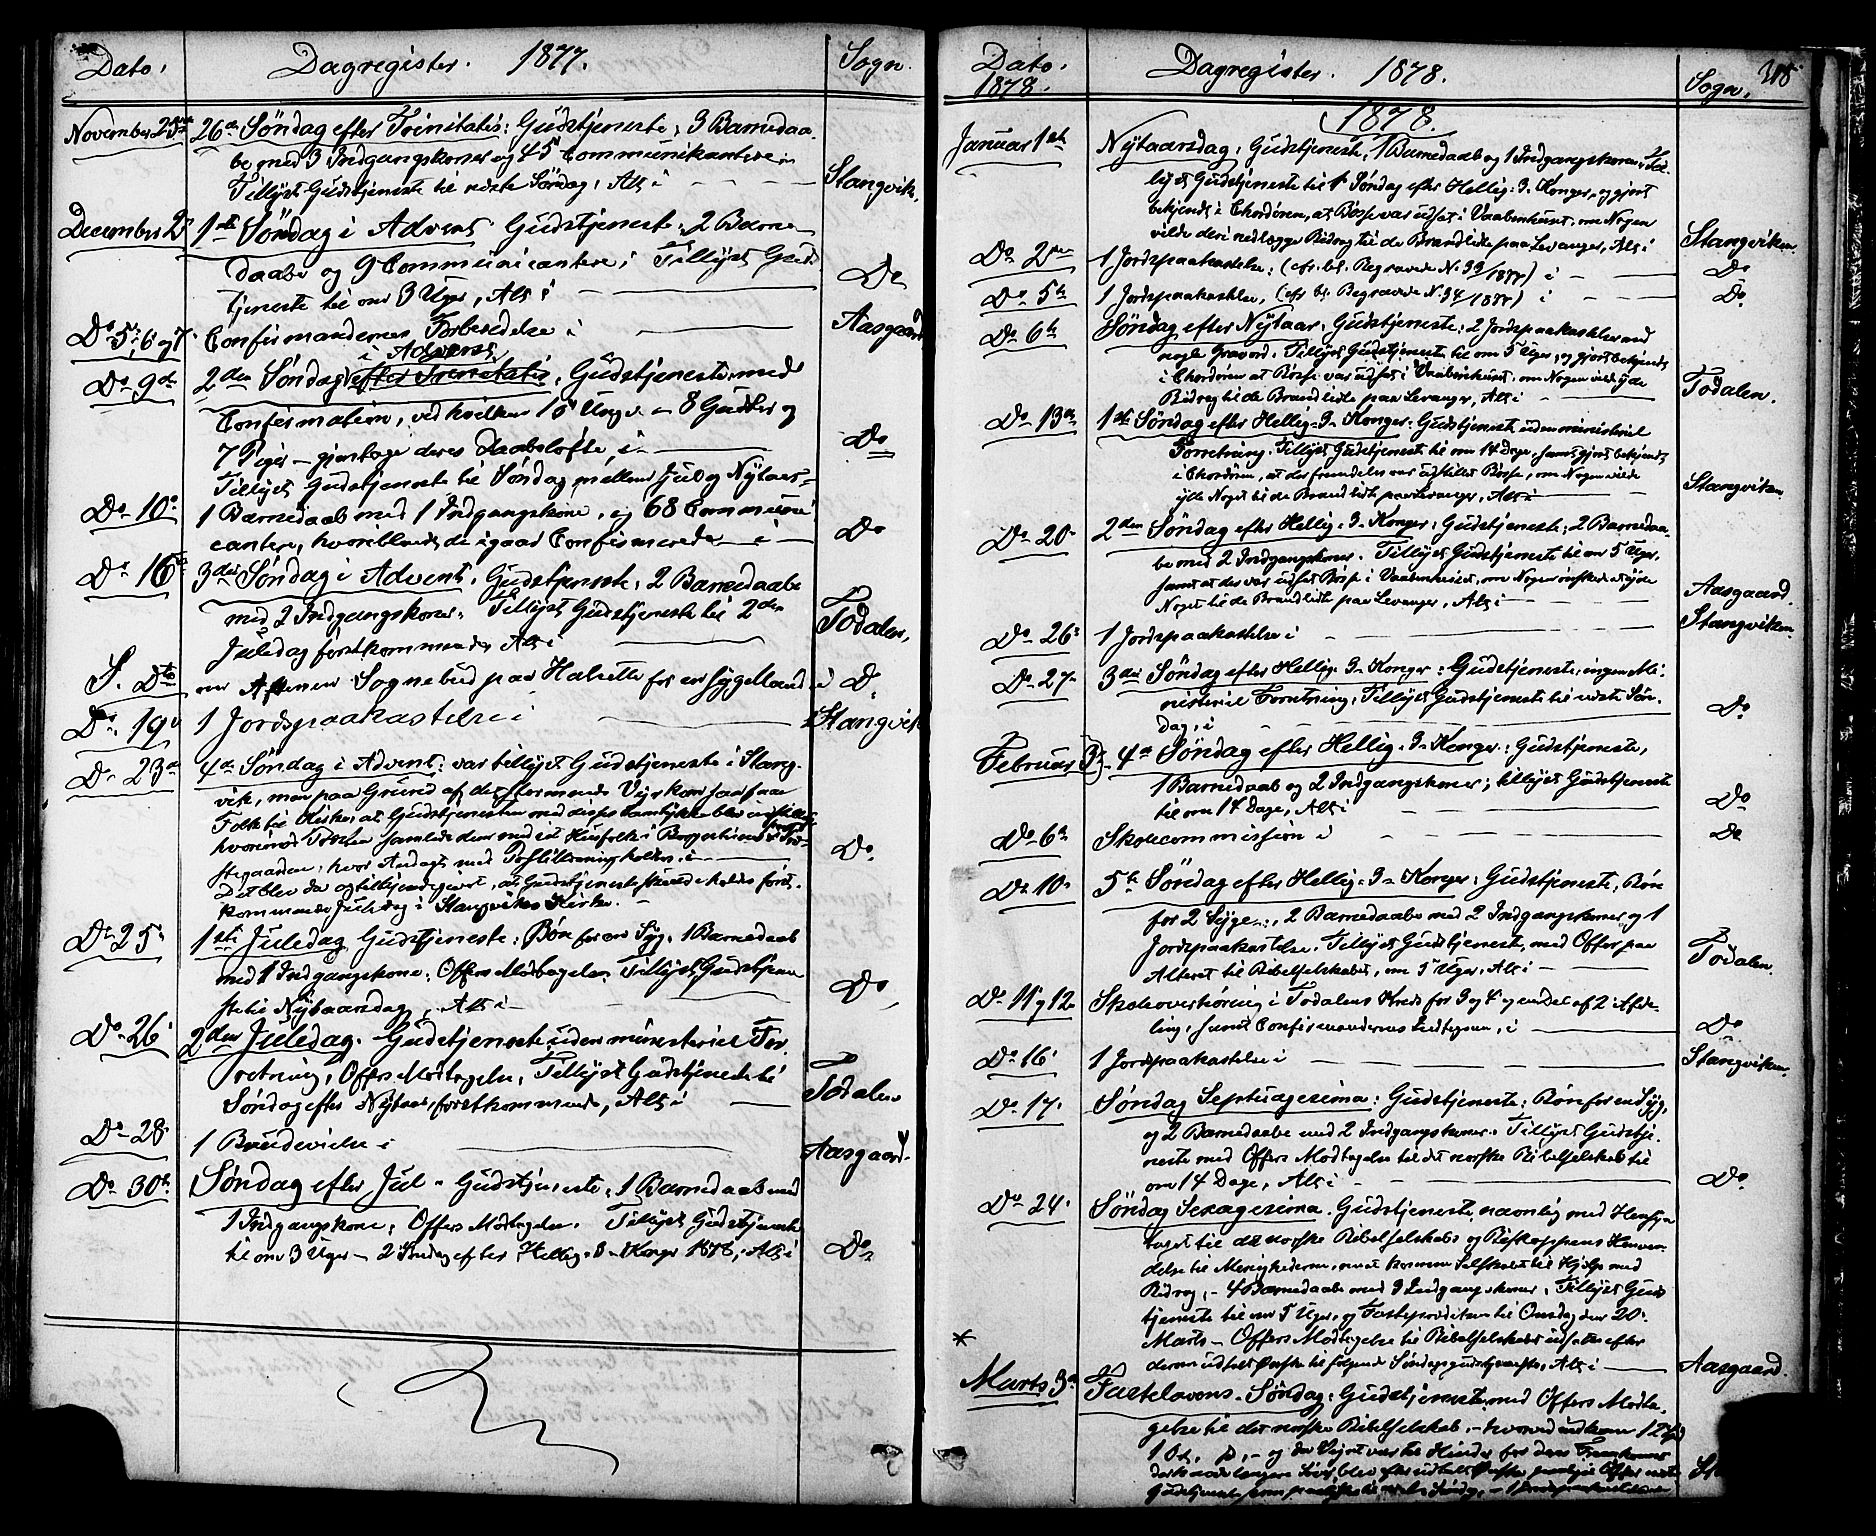 Dato.
Dagregister. 1877.
Sogn.
November 25de
26de Søndag efter Trinitatis: Gudstjeneste; 3 Barnedaa-
be med 3 Indgangskoner og 45 Communikantere;
Tillyst Gudstjeneste til næste Søndag, Alt i
Stangvik.
December 2den
1ste Søndag i Advent. Gudstjeneste; 2 Barne-
daabe og 9 Communicantere; Tillyst Guds-
tjeneste til om 3 Uger, Alt i
Do
Do 5te, 6 og 7
Confirmandernes Forberedelse i
Aasgaard
i Advent
Do 9de
2den Søndag efter Trinitatis, Gudstjeneste med
Confirmation, ved hvilken 15 Unge - 8 Gutter og
7 Piger - gjentoge deres Daabsløfte, i
Do
Tillyst Gudstjeneste til Søndag mellem Jul og Nytaar
Do 10de
1 Barnedaab med 1 Indgangskone, og 68 Communi-
cantere, hvoriblandt de igaar Confirmerede i
Do
Do 16de
3die Søndag i Advent, Gudstjeneste; 2 Barnedaabe
med 2 Indgangskoner. Tillyst Gudstjeneste til 2den
Juledag førstkommende, Alt i
Todalen,
S. Dto
om Aftenen Sognebud paa Halsette for en syg Mand i
Do
Do 19de
1 Jordspaakastelse i
Stangvik
Do 23de
4de Søndag i Advent: var tillyst Gudstjeneste i Stang-
vik, men paa Grund af det stormende Veir kom saa faa
Folk til Kirken at Gudstjenesten med disses Samtykke blev indstillet,
hvorimod Præsten samlede dem med sit Husfolk i Borgestuen i Præ-
stegaarden, hvor Andagt med Postillæsning holdtes, i
Do
Det blev da og tilkjendegivet, at Gudstjeneste skulde holdes først-
kommende Juledag i Stangvikens Kirke.
Do 25de
1ste Juledag Gudstjeneste; Bøn for en Syg, 1 Barnedaab
med 1 Indgangskone; Offers Modtagelse. Tillyst Gudstjene-
ste til Nytaarsdag, Alt i
Do
Do 26
2den Juledag. Gudstjeneste uden ministeriel For-
retning, Offers Modtagelse, Tillyst Gudstjeneste til
Søndag efter Nytaar, førstkommende, Alt i
Todalen
Do 28
1 Brudevielse i
Aasgaard.
Do 30te
Søndag efter Jul - Gudstjeneste; 1 Barnedaab med
1 Indgangskone; Offers Modtagelse. Tillyst Gudstjeneste
til om 3 Uger - 2 Søndag efter Hellig-3-Konger 1878, Alt i
Do
Dato.
1878.
Dagregister. 1878.
Sogn.
318
1878.
Januar 1ste
Nytaarsdag, Gudstjeneste, 1 Barnedaab og 1 Indgangskone; Til-
lyst Gudstjeneste til 1 Søndag efter Hellig-3-Konger, og gjort
bekjendt i Chordøren, at Bøsse var udsat i Vaabenhuset, om Nogen
vilde deri nedlægge Bidrag til de Brandlidte paa Levanger, Alt i
Stangviken
Do 2den
1 Jordspaakastelse; (cfr. bl. Begravede N. 33/1877) i
Do
Do 5te
1 Jordspaakastelse, (cfr. bl. Begravede N. 34/1877) i
Do.
Do 6te
Søndag efter Nytaar, Gudstjeneste; 2 Jordspaakastelser med
nogle Gravord. Tillyst Gudstjeneste til om 5 Uger, og gjort bekjendt
i Chordøren at Bøsse var udsat i Vaabenhuset, om Nogen vilde yde
Bidrag til de Brandlidte paa Levanger, Alt i
Todalen.
Do 13de
1ste Søndag efter Hellig-3-Konger: Gudstjeneste uden ministeriel
Forretning. Tillyst Gudstjeneste til om 14 Dage, samt gjort bekjendt
i Chordøren, at der fremdeles var udstillet Bøsse, om Nogen vilde
yde Noget til de Brandlidte paa Levanger, Alt i
Stangviken
Do 20
2den Søndag efter Hellig-3-Konger, Gudstjeneste; 2 Barnedaa-
be med 2 Indgangskoner. Tillyst Gudstjeneste til om 5 Uger,
samt at der var udsat Bøsse i Vaabenhuset, om Nogen ønskede at yde
Noget til de Brandlidte paa Levanger, Alt i
Aasgaard.
Do 26
1 Jordspaakastelse i
Stangviken
Do 27
3die Søndag efter Hellig-3-Konger: Gudstjeneste, ingen Mi-
nisteriel Forretning; Tillyst Gudstjeneste til næste Søn-
dag, i
Do
Februar 3die
4de Søndag efter Hellig-3-Konger: Gudstjeneste,
1 Barnedaab og 2 Indgangskoner; tillyst Gudstjeneste
til om 14 Dage, Alt i
Do
Do 6te
Skolecommission i
Do
Do 10
5te Søndag efter Hellig-3-Konger: Gudstjeneste, Bøn
for 2 Syge, 2 Barnedaabe med 2 Indgangskoner og 1
Jordspaakastelse. Tillyst Gudstjeneste, med Offer paa
Alteret til Bibelselskabet, om 5 Uger, Alt i
Todalen.
Do 11 og 12
Skoleoverhøring i Todalens Kreds for 3 og 4 og endel af 2 Afde-
ling, samt Confirmandernes Indtegnen, i
Do
Do 16
1 Jordspaakastelse i
Stangviken.
Do 17
Søndag Septuagesima: Gudstjeneste; Bøn for en Syg,
og 2 Barnedaabe med 2 Indgangskoner. Tillyst Gudstje-
neste med Offers Modtagelse til det norske Bibelselskab til
om 14 Dage, Alt i
Do
Do 24
Søndag Sexagesima. Gudstjeneste, navnlig med Hensyn
taget til det norske Bibelselskabs og Biskoppens Henven-
delse til Menighederne, om at komme Selskabet til Hjelp med
Bidrag, - 4 Barnedaabe med 3 Indgangskoner, Tillyst Guds-
tjeneste til om 5 Uger, og Fasteprædiken til Onsdag den 20
Marts - Offers Modtagelse til Bibelselskabet udsattes efter
derom udtalt Ønske til følgende Søndagsgudstjeneste, Alt i
Aasgaard.
*
Marts 3die
Fastelavens-Søndag: Gudstjeneste med Offers Modta-
gelse til det norske Bibelselskab, - hvorved indkom 12
1 Ort, β, - og da Veiret var til Hinder for dem
Gudstjeneste